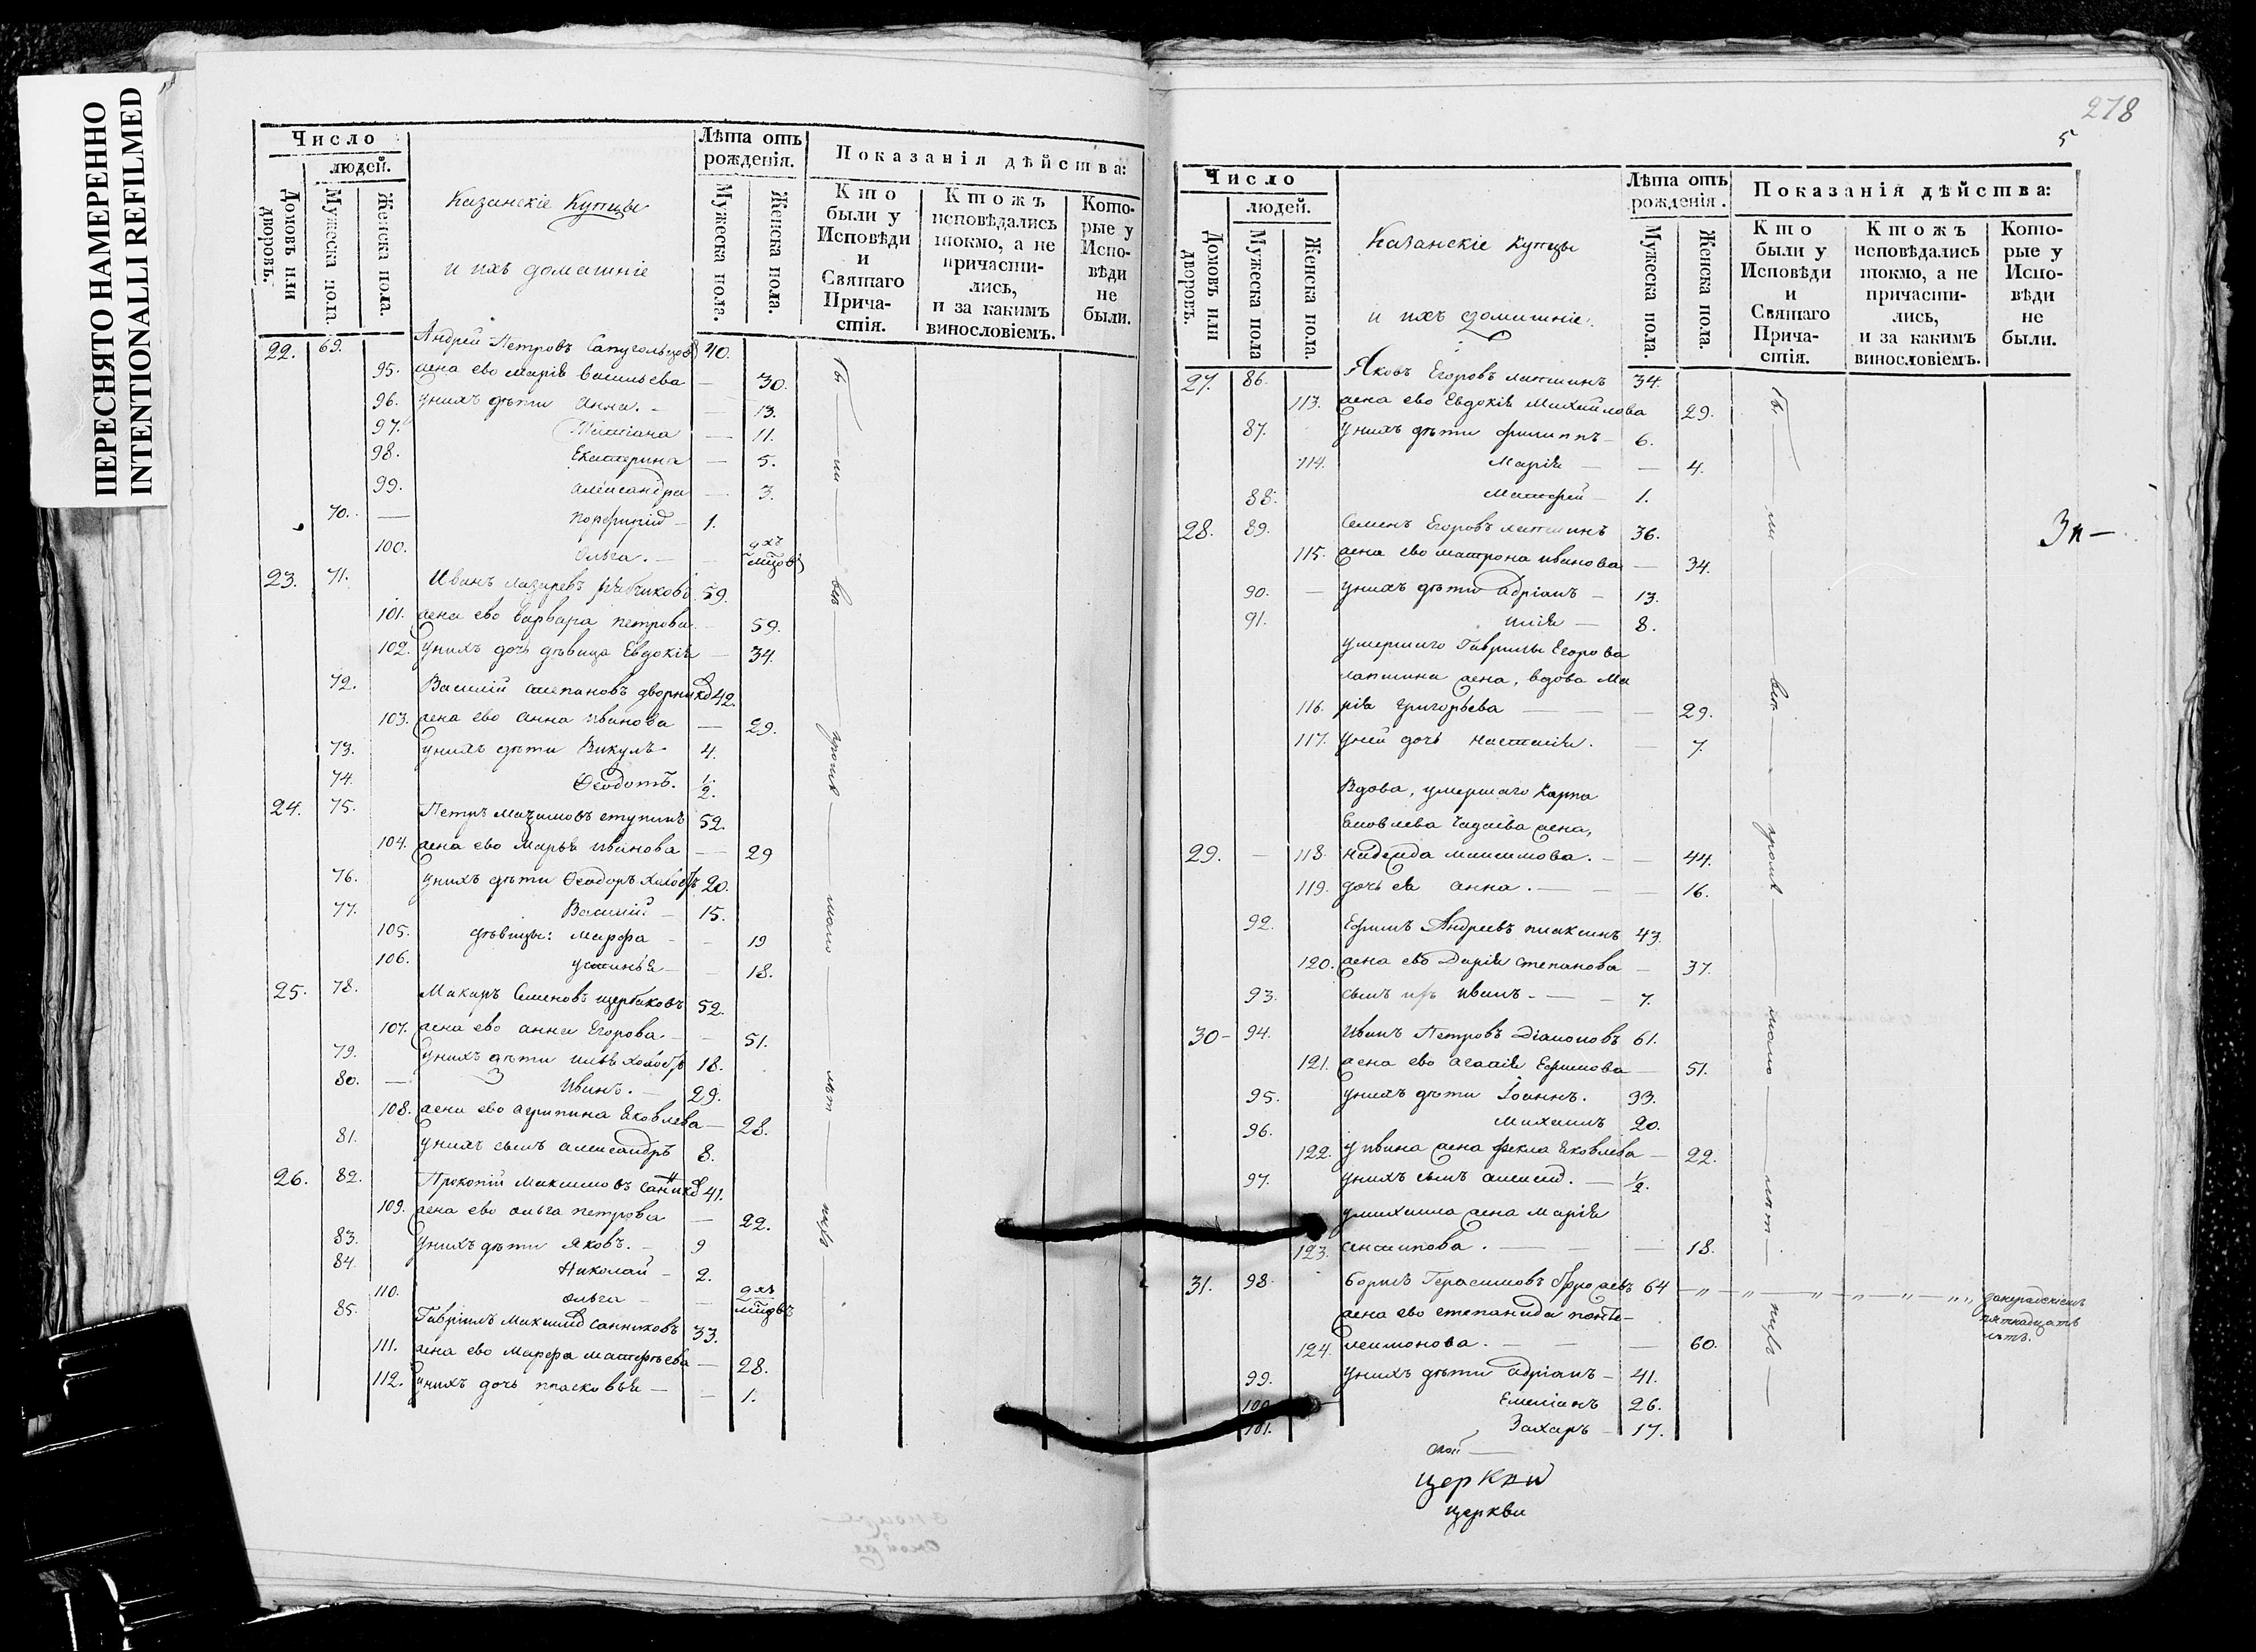 ПЕРЕСНЯТО НАМЕРЕННО
INTENTIONALLI REFILMED
Число
людей.
Домовъ или дворовъ.
Мужеска пола.
Женска пола.
Казанскіе Купцы
и ихъ домашніе
Лѣта отъ рожденія.
Мужеска пола.
Женска пола.
Показанія дѣйства:
Кто были у Исповѣди и Святаго Прича-стія.
Ктожъ исповѣдались токмо, а не причасти-лись, и за какимъ винословіемъ.
Кото-рые у Испо-вѣди не были.
22. 69. Андрей Петровъ 40.
95. жена ево Марія Васильева — 30.
96. у нихъ дѣти Анна. — 13.
97. Татіана — 11.
98. Екатерина — 5.
99. Александра — 3.
70. — Порфирій — 1.
100. Ольга. — 2хъ мцовъ
23. 71. Иванъ Лазаревъ Рябчиковъ 59.
101. жена ево Варвара Петрова — 59.
102. у нихъ дочь дѣвица Евдокія — 34.
72. Василій Степановъ 42.
103. жена ево Анна Иванова — 29.
73. у нихъ дѣти Викулъ 4.
74. Ѳеодотъ. 1/2.
24. 75. Петръ Маѯимовъ Ступинъ 52.
104. жена ево Марья Иванова — 29
76. у нихъ дѣти Ѳеодоръ холостъ 20.
77. Василій — 15.
105. дѣвицы: Марфа — 19
106. Устинья — 18.
25. 78. Макаръ Семеновъ Щербаковъ 52.
107. жена ево Анна Егорова — 51.
79. у нихъ дѣти Илья холостъ 18.
80. — Иванъ. — 29.
108. жена ево Агрипина Яковлева — 28.
81. у нихъ сынъ Александръ 8.
26. 82. Прокопій Максимовъ 41.
109. жена ево Ольга Петрова — 22.
83. у нихъ дѣти Яковъ. — 9
84. Николай — 2.
110. Ольга — 2хъ мцовъ
85. Гавріилъ Санниковъ 33.
111. жена ево Марфа Матфѣева — 28.
112. у нихъ дочь Прасковья — 1.
278
5
Число
людей.
Домовъ или дворовъ.
Мужеска пола
Женска пола.
Казанскіе Купцы
и ихъ домашніе.
Лѣта отъ рожденія.
Мужеска пола.
Женска пола.
Показанія дѣйства:
Кто были у Исповѣди и Святаго Прича-стія.
Ктожъ исповѣдались токмо, а не причасти-лись, и за какимъ винословіемъ.
Кото-рые у Испо-вѣди не были.
27. 86. Яковъ Егоровъ Лапшинъ 34.
113. жена ево Евдокія Михайлова 29.
87. у нихъ дѣти Филиппъ — 6.
114. Марія — 4.
88. Матфей — 1.
28. 89. Семенъ Егоровъ Лапшинъ 36.
115. жена ево Матрона Иванова — 34.
90. — у нихъ дѣти Адріанъ — 13.
91. Илія — 8.
умершаго Гаврилы Егорова
Лапшина жена, вдова Ма
116. рія Григорьева — 29.
117. у ней дочь Настасія. — 7.
Вдова, умершаго Карпа
Яковлева Чадаева жена,
29. — 118. Надежда Максимова. — 44.
119. дочь ея Анна. — 16.
92. Ефимъ Андреевъ 43.
120. жена ево Дарія Степанова — 37.
93. сынъ ихъ Иванъ. — 7.
30 — 94. Иванъ Петровъ 61.
121. жена ево Агапія Ефимова — 51.
95. у нихъ дѣти Іоаннъ. 33.
96. Михаилъ 20.
122. у Ивана жена Фекла Яковлева — 22.
97. у нихъ сынъ Алексій. — 1/2.
у Михаила жена Марія
123. — 18.
31. 98. Борисъ Герасимовъ 64
пятнадцать
лѣтъ.
жена ево Степанида Панте-
124. леимонова. — 60.
99. у нихъ дѣти Адріанъ — 41.
100 Емеліанъ 26.
101. Захаръ — 17.
церкви
церкви